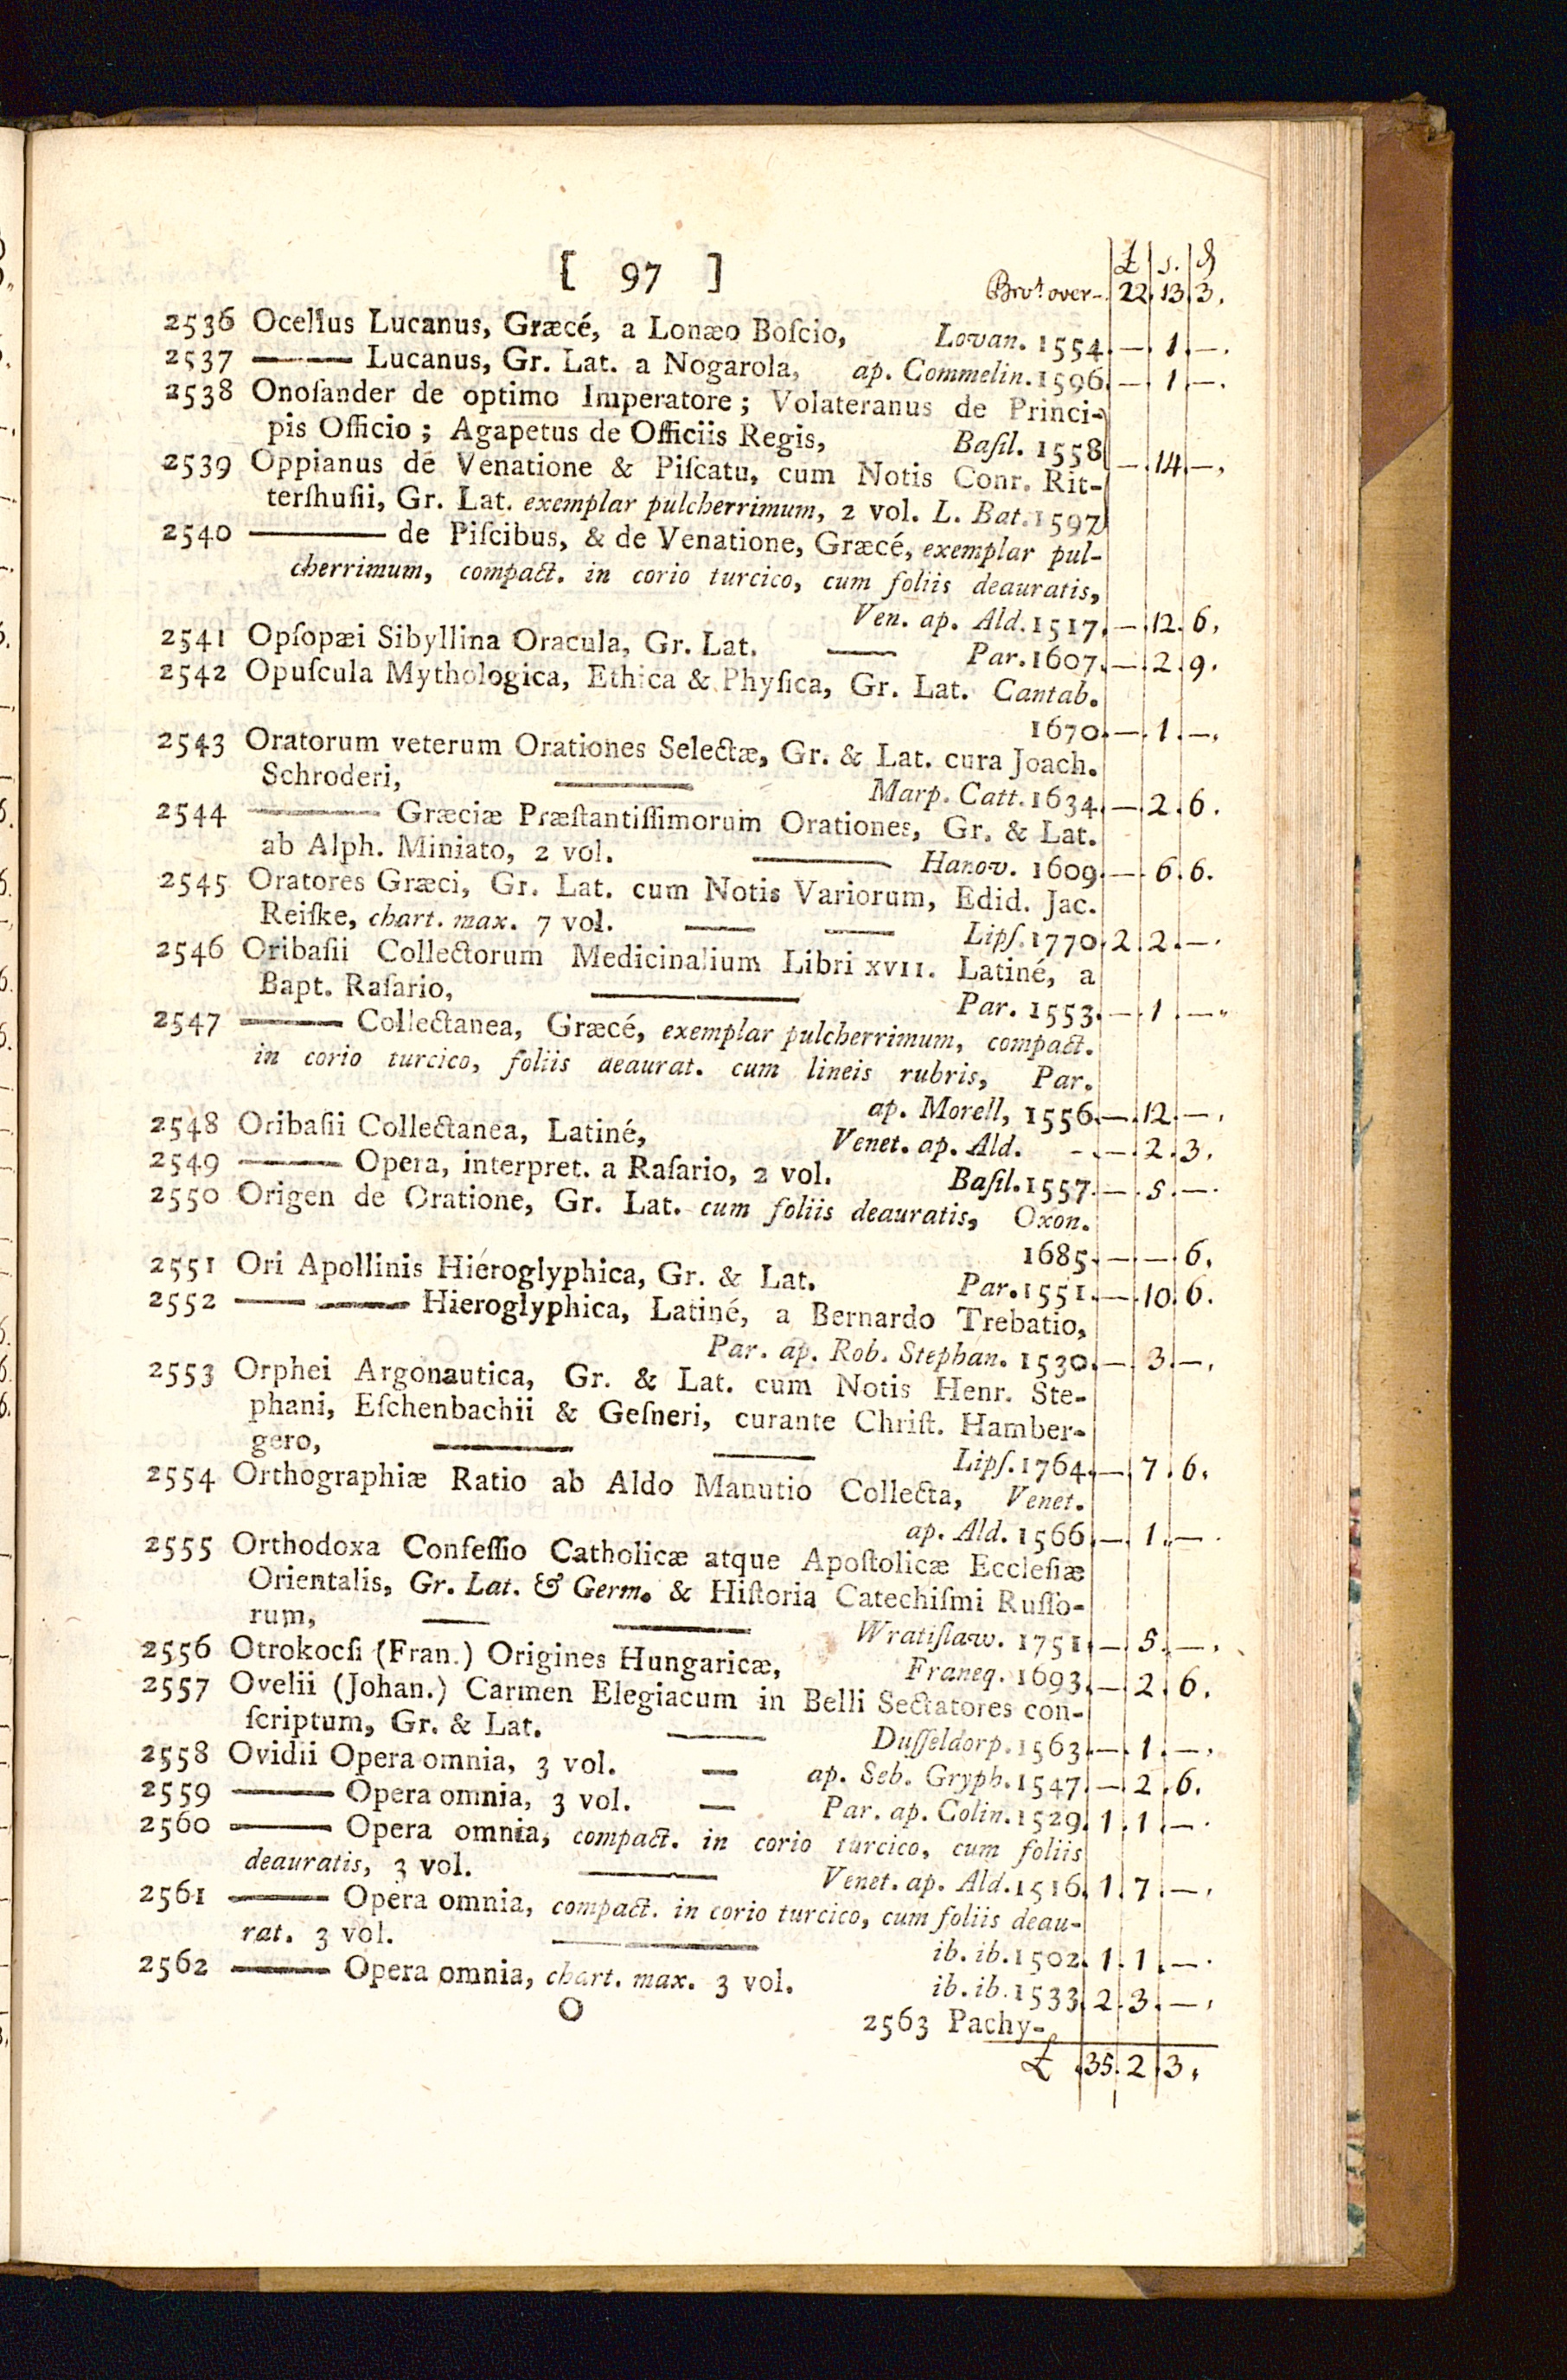 [ 97 ]
£ s. d
Bro.t over-. 22. 13. 3.
2536 Ocellus Lucanus, Græcé, a Lonæo Boſcio, Lovan. 1554. — . 1 . — .
2537 —— Lucanus, Gr. Lat. a Nogarola, ap. Commelin. 1596. — . 1 . — .
2538 Onoſander de optimo Imperatore; Volateranus de Princi-
pis Officio; Agapetus de Officiis Regis, Baſil. 1558
— . 14 . — ,
2539 Oppianus de Venatione & Piſcatu, cum Notis Conr. Rit-
terſhuſii, Gr. Lat. exemplar pulcherrimum, 2 vol. L. Bat. 1597
2540 —— de Piſcibus, & de Venatione, Græcé, exemplar pul-
cherrimum, compact. in corio turcico, cum foliis deauratis,
Ven. ap. Ald. 1517. — . 12 . 6 ,
2541 Opſopæi Sibyllina Oracula, Gr. Lat. —— Par. 1607. — . 2 . 9 .
2542 Opuſcula Mythologica, Ethica & Phyſica, Gr. Lat. Cantab.
1670. — . 1 . — ,
2543 Oratorum veterum Orationes Selectæ, Gr. & Lat. cura Joach.
Schroderi, —— Marp. Catt. 1634. — . 2 . 6 .
2544 —— Græciæ Præſtantiſſimorum Orationes, Gr. & Lat.
ab Alph. Miniato, 2 vol. —— Hanov. 1609. — . 6 . 6 .
2545 Oratores Græci, Gr. Lat. cum Notis Variorum, Edid. Jac.
Reiſke, chart. max. 7 vol. —— —— Lipſ. 1770. 2 . 2 . — .
2546 Oribaſii Collectorum Medicinalium Libri XVII. Latiné, a
Bapt. Raſario, —— Par. 1553. — . 1 . — .
2547 —— Collectanea, Græcé, exemplar pulcherrimum, compact.
in corio turcico, foliis deaurat. cum lineis rubris, Par.
ap. Morell, 1556. — . 12 . — ,
2548 Oribaſii Collectanea, Latiné, Venet. ap. Ald. - . — . 2 . 3 .
2549 —— Opera, interpret. a Raſario, 2 vol. Baſil. 1557. — . 5 . — .
2550 Origen de Oratione, Gr. Lat. cum foliis deauratis, Oxon.
1685. — . — . 6 .
2551 Ori Apollinis Hieroglyphica, Gr. & Lat. Par. 1551. — . 10 . 6 .
2552 —— —— Hieroglyphica, Latiné, a Bernardo Trebatio,
Par. ap. Rob. Stephan. 1530. — . 3 . — ,
2553 Orphei Argonautica, Gr. & Lat. cum Notis Henr. Ste-
phani, Eſchenbachii & Geſneri, curante Chriſt. Hamber-
gero, —— —— Lipſ. 1764. — . 7 . 6 .
2554 Orthographiæ Ratio ab Aldo Manutio Collecta, Venet.
ap. Ald. 1566. — . 1 . — .
2555 Orthodoxa Confeſſio Catholicæ atque Apoſtolicæ Eccleſiæ
Orientalis, Gr. Lat. & Germ. & Hiſtoria Catechiſmi Ruſſo-
rum, —— —— Wratiſlaw. 1751. — . 5 . — ,
2556 Otrokocſi (Fran.) Origines Hungaricæ, Franeq. 1693. — . 2 . 6 .
2557 Ovelii (Johan.) Carmen Elegiacum in Belli Sectatores con-
ſcriptum, Gr. & Lat. —— Duſſeldorp. 1563. — . 1 . — ,
2558 Ovidii Opera omnia, 3 vol. — ap. Seb. Gryph. 1547. — . 2 . 6 .
2559 —— Opera omnia, 3 vol. — Par. ap. Colin. 1529. 1 . 1 . — .
2560 —— Opera omnia, compact. in corio turcico, cum foliis
deauratis, 3 vol. —— Venet. ap. Ald. 1516. 1 . 7 . — ,
2561 —— Opera omnia, compact. in corio turcico, cum foliis deau-
rat. 3 vol. —— ib. ib. 1502. 1 . 1 . — .
2562 —— Opera omnia, chart. max. 3 vol. ib. ib. 1533. 2 . 3 . — ,
O
2563 Pachy-
£ . 35 . 2 . 3 ,